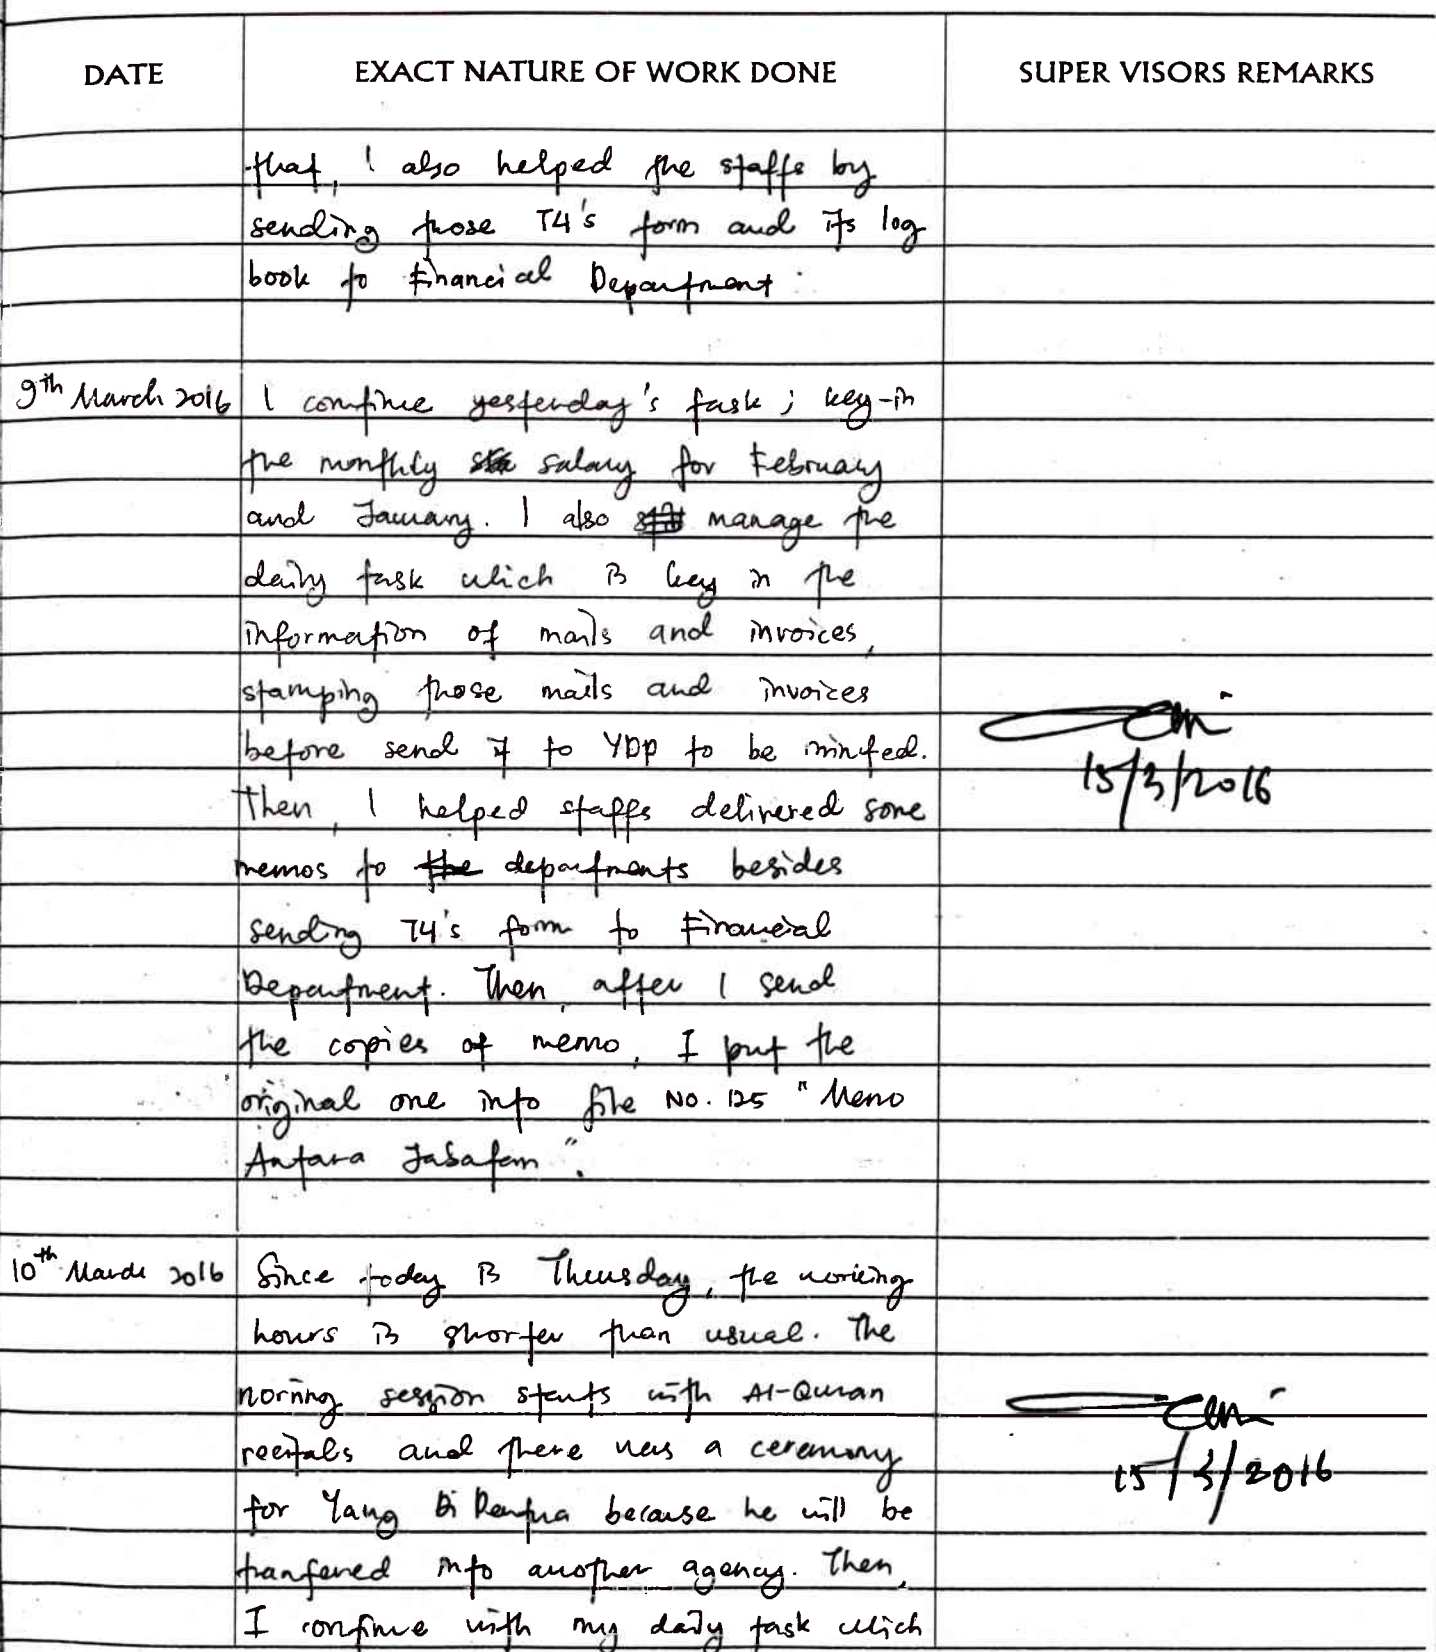 DATE EXACT NATURE OF WORK DONE SUPER VISORS REMARKS
that, I also helped the staffs by
sending those T4's form and its log
book to Financial Department.
9th March 2016 I continue yesterday's task ; key-in
the monthly salary for February
and January. I also manage the
daily task which is key in the
information of mails and invoices,
stamping those mails and invoices
before send it to YDP to be minited.
Then, I helped staffs delivered some
15/3/2016
memos to the departments besides
sending T4's form to Financial
Department. Then, after I send
the copies of memo, I put the
original one into file No. 125 "Memo
Antara Jabatan".
10th March 2016 Since today is Thursday, the working
hours is shorter than usual. The
morning session starts with Al-Quran
recitals and there was a ceremony
15/3/2016
for Yang Di Pertua because he will be
tranfered into another agency. Then,
I continue with my daily task which